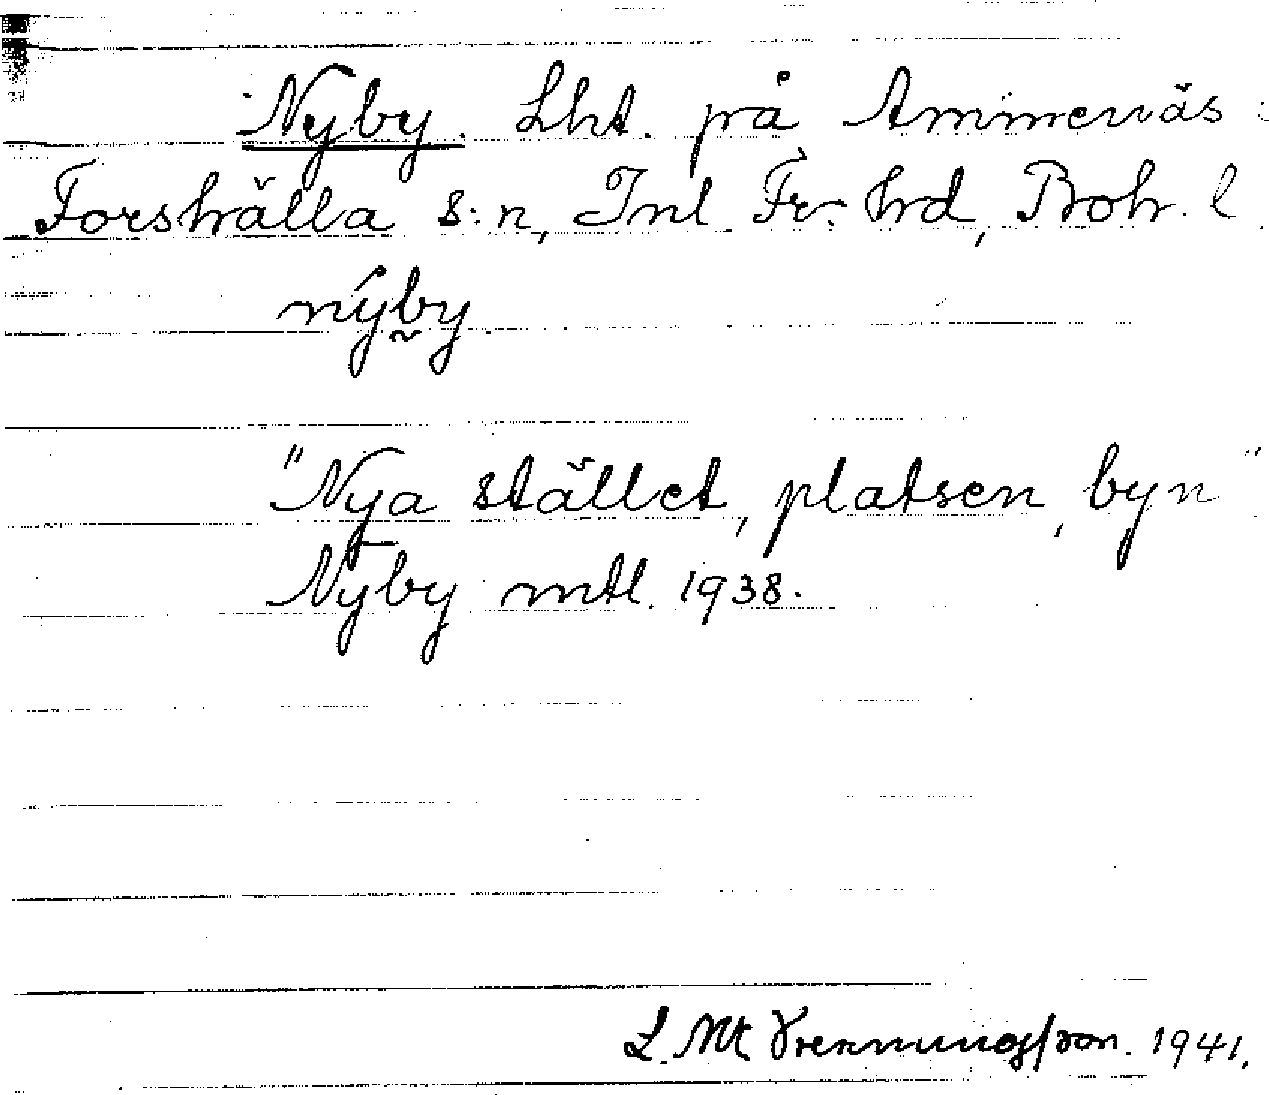 Nyby. Lht. på Ammenäs i
Forshälla s:n, Inl. Fr. hrd, Boh. l
nýby
"Nya stället, platsen, byn"
Nyby mtl. 1938.
L. M. 1941.